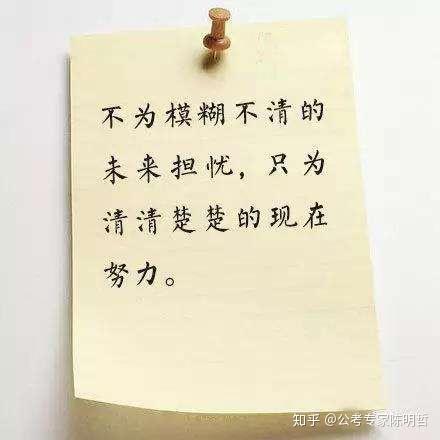 不为模糊不清的
未来担忧，只为
清清楚楚的现在
努力。
知乎 @公考专家陈明哲